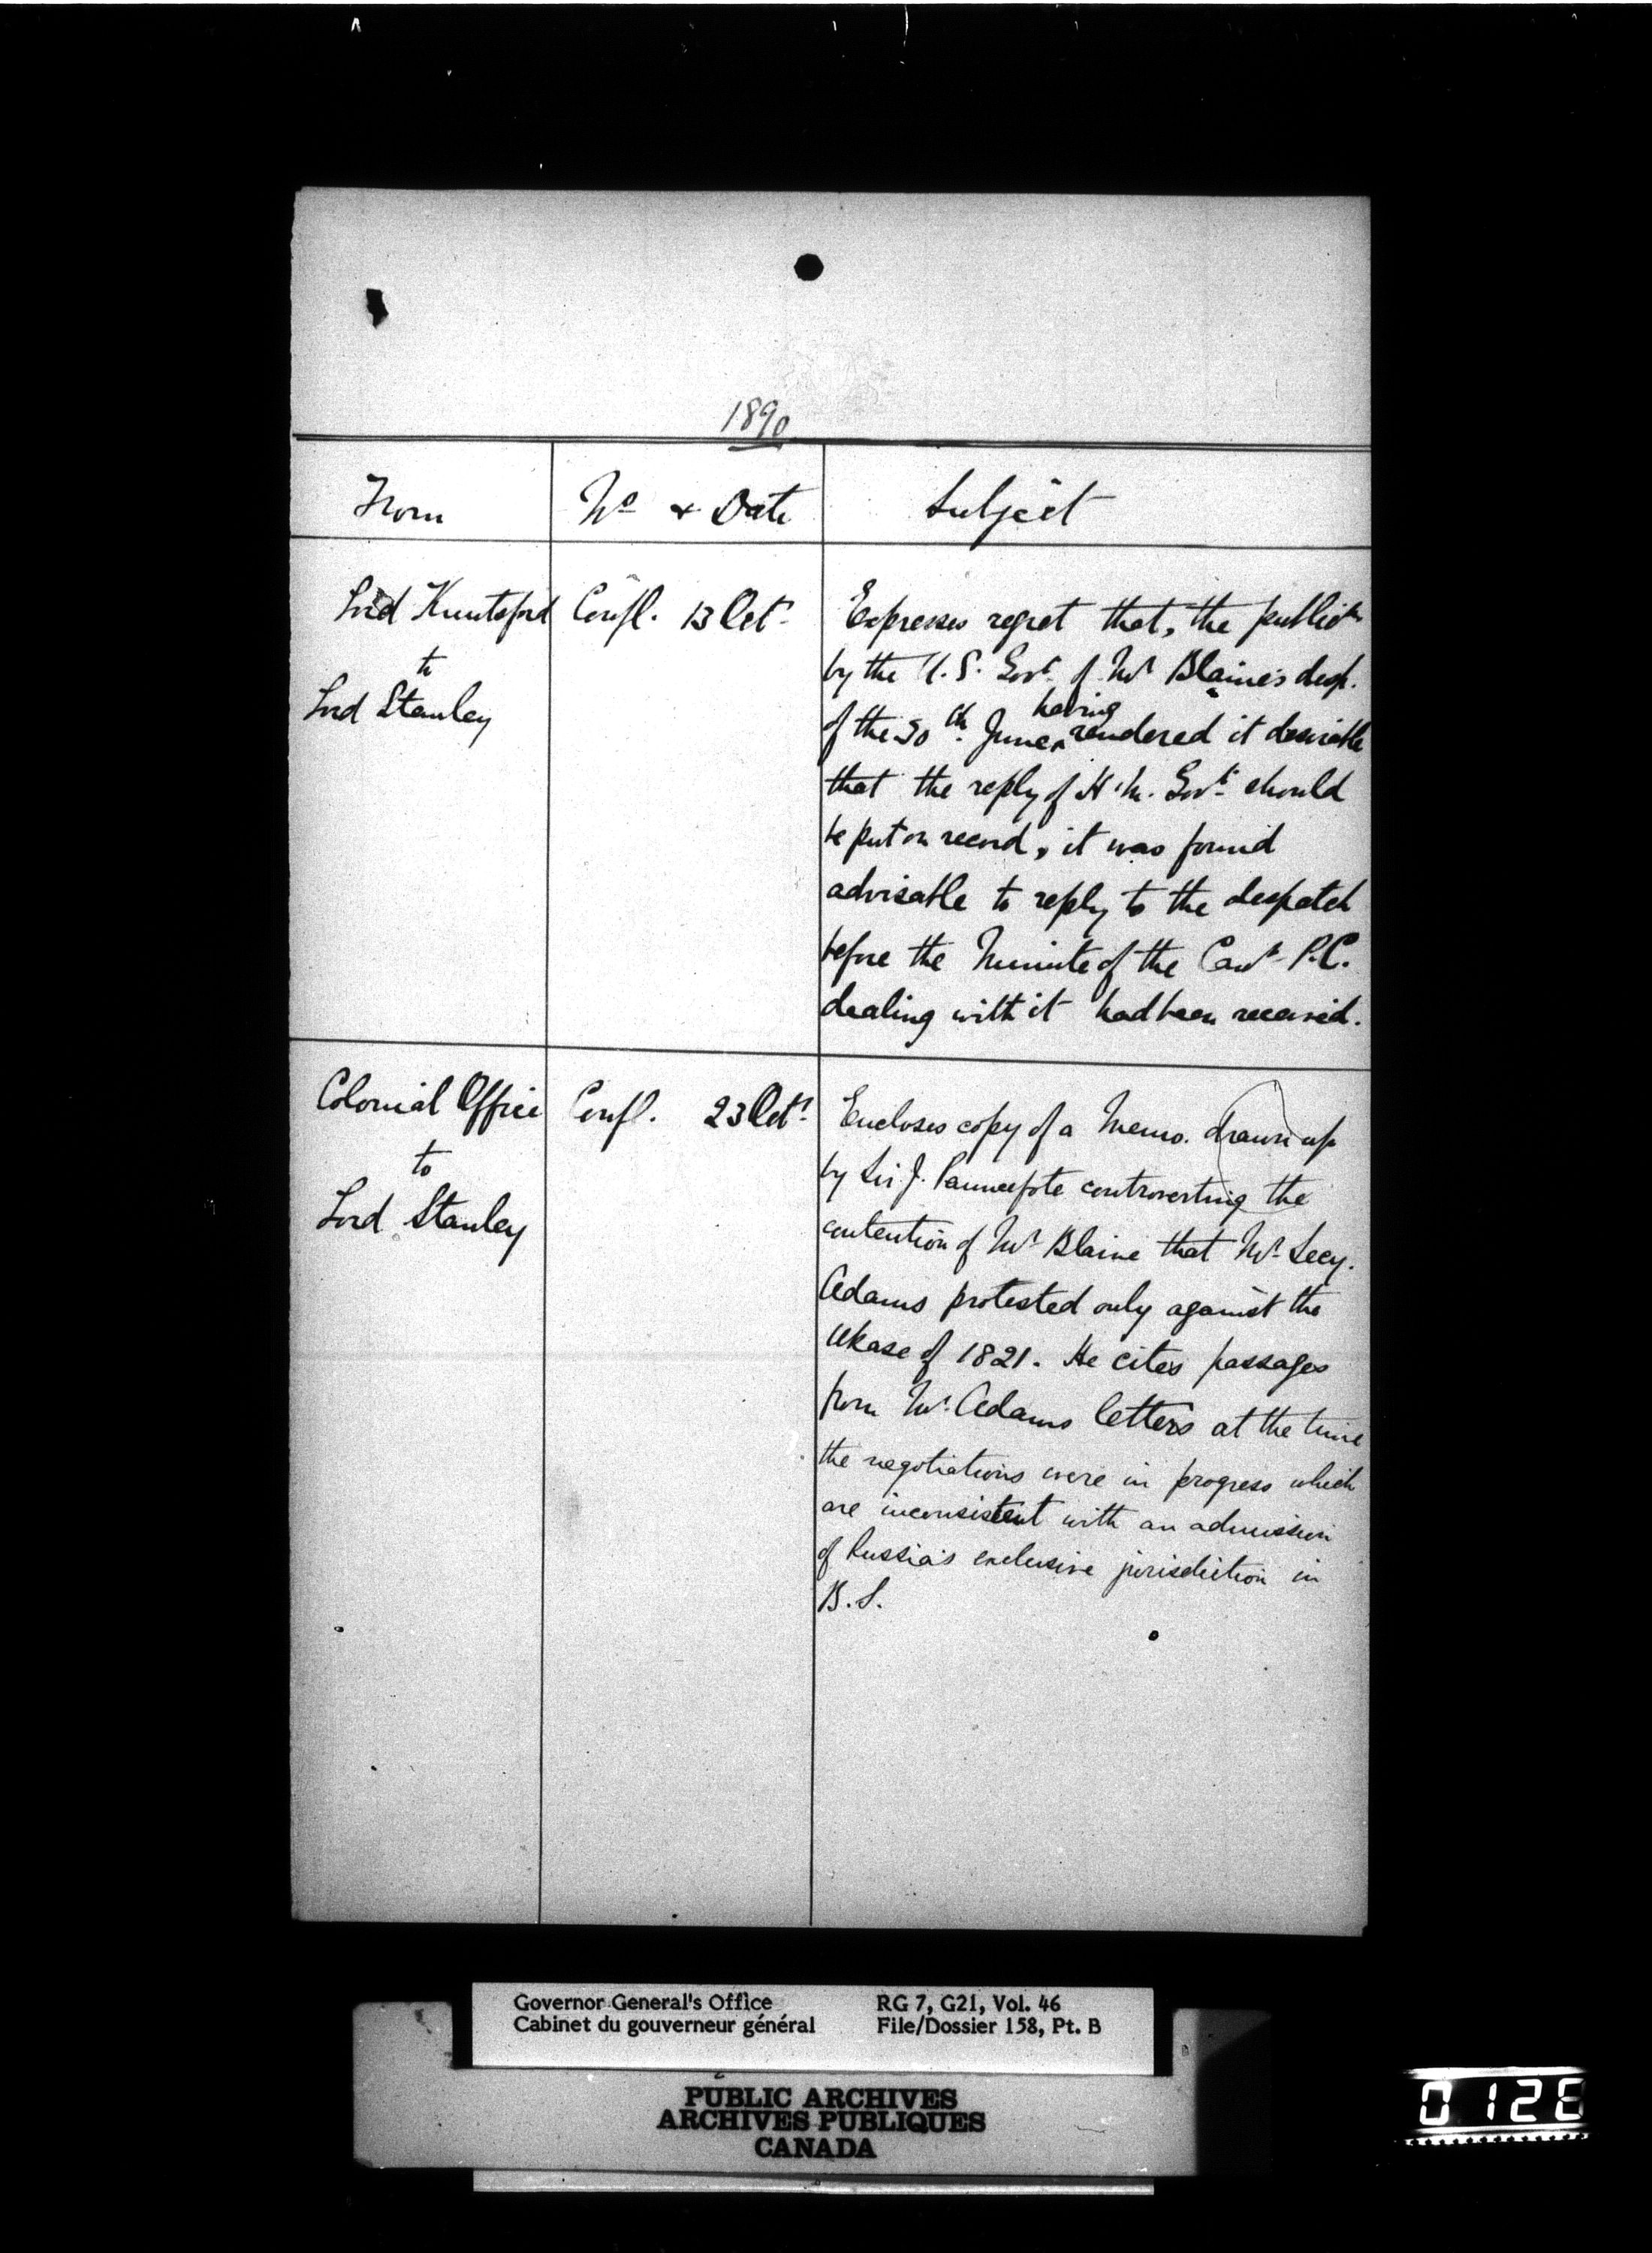 1890
From
No & Date
Subject
Lord Knutsford
to
Lord Stanley
Confl. 13 Oct.
Expresses regret that, the publicn
by the U.S. Govt. of Mr Blaine's desp.
of the 30th June, having rendered it desirable
that the reply of H.M. Govt. should
be put on record, it was found
advisable to reply to the despatch
before the Minute of the Can. P.C.
dealing with it had been received.
Colonial Office
to
Lord Stanley
Confl. 23 Oct.
Encloses copy of a Memo. drawn up
by Sir J. Pauncefote controverting the
contention of Mr Blaine that Mr. Secy.
Adams protested only against the
Ukase of 1821. He cites passages
from Mr. Adams letters at the time
the negotiations were in progress which
are inconsistent with an admission
of Russia's exclusive jurisdiction in
B.S.
Governor General's Office
Cabinet du gouverneur général
RG 7, G21, Vol. 46
File/Dossier 158, Pt. B
PUBLIC ARCHIVES
ARCHIVES PUBLIQUES
CANADA